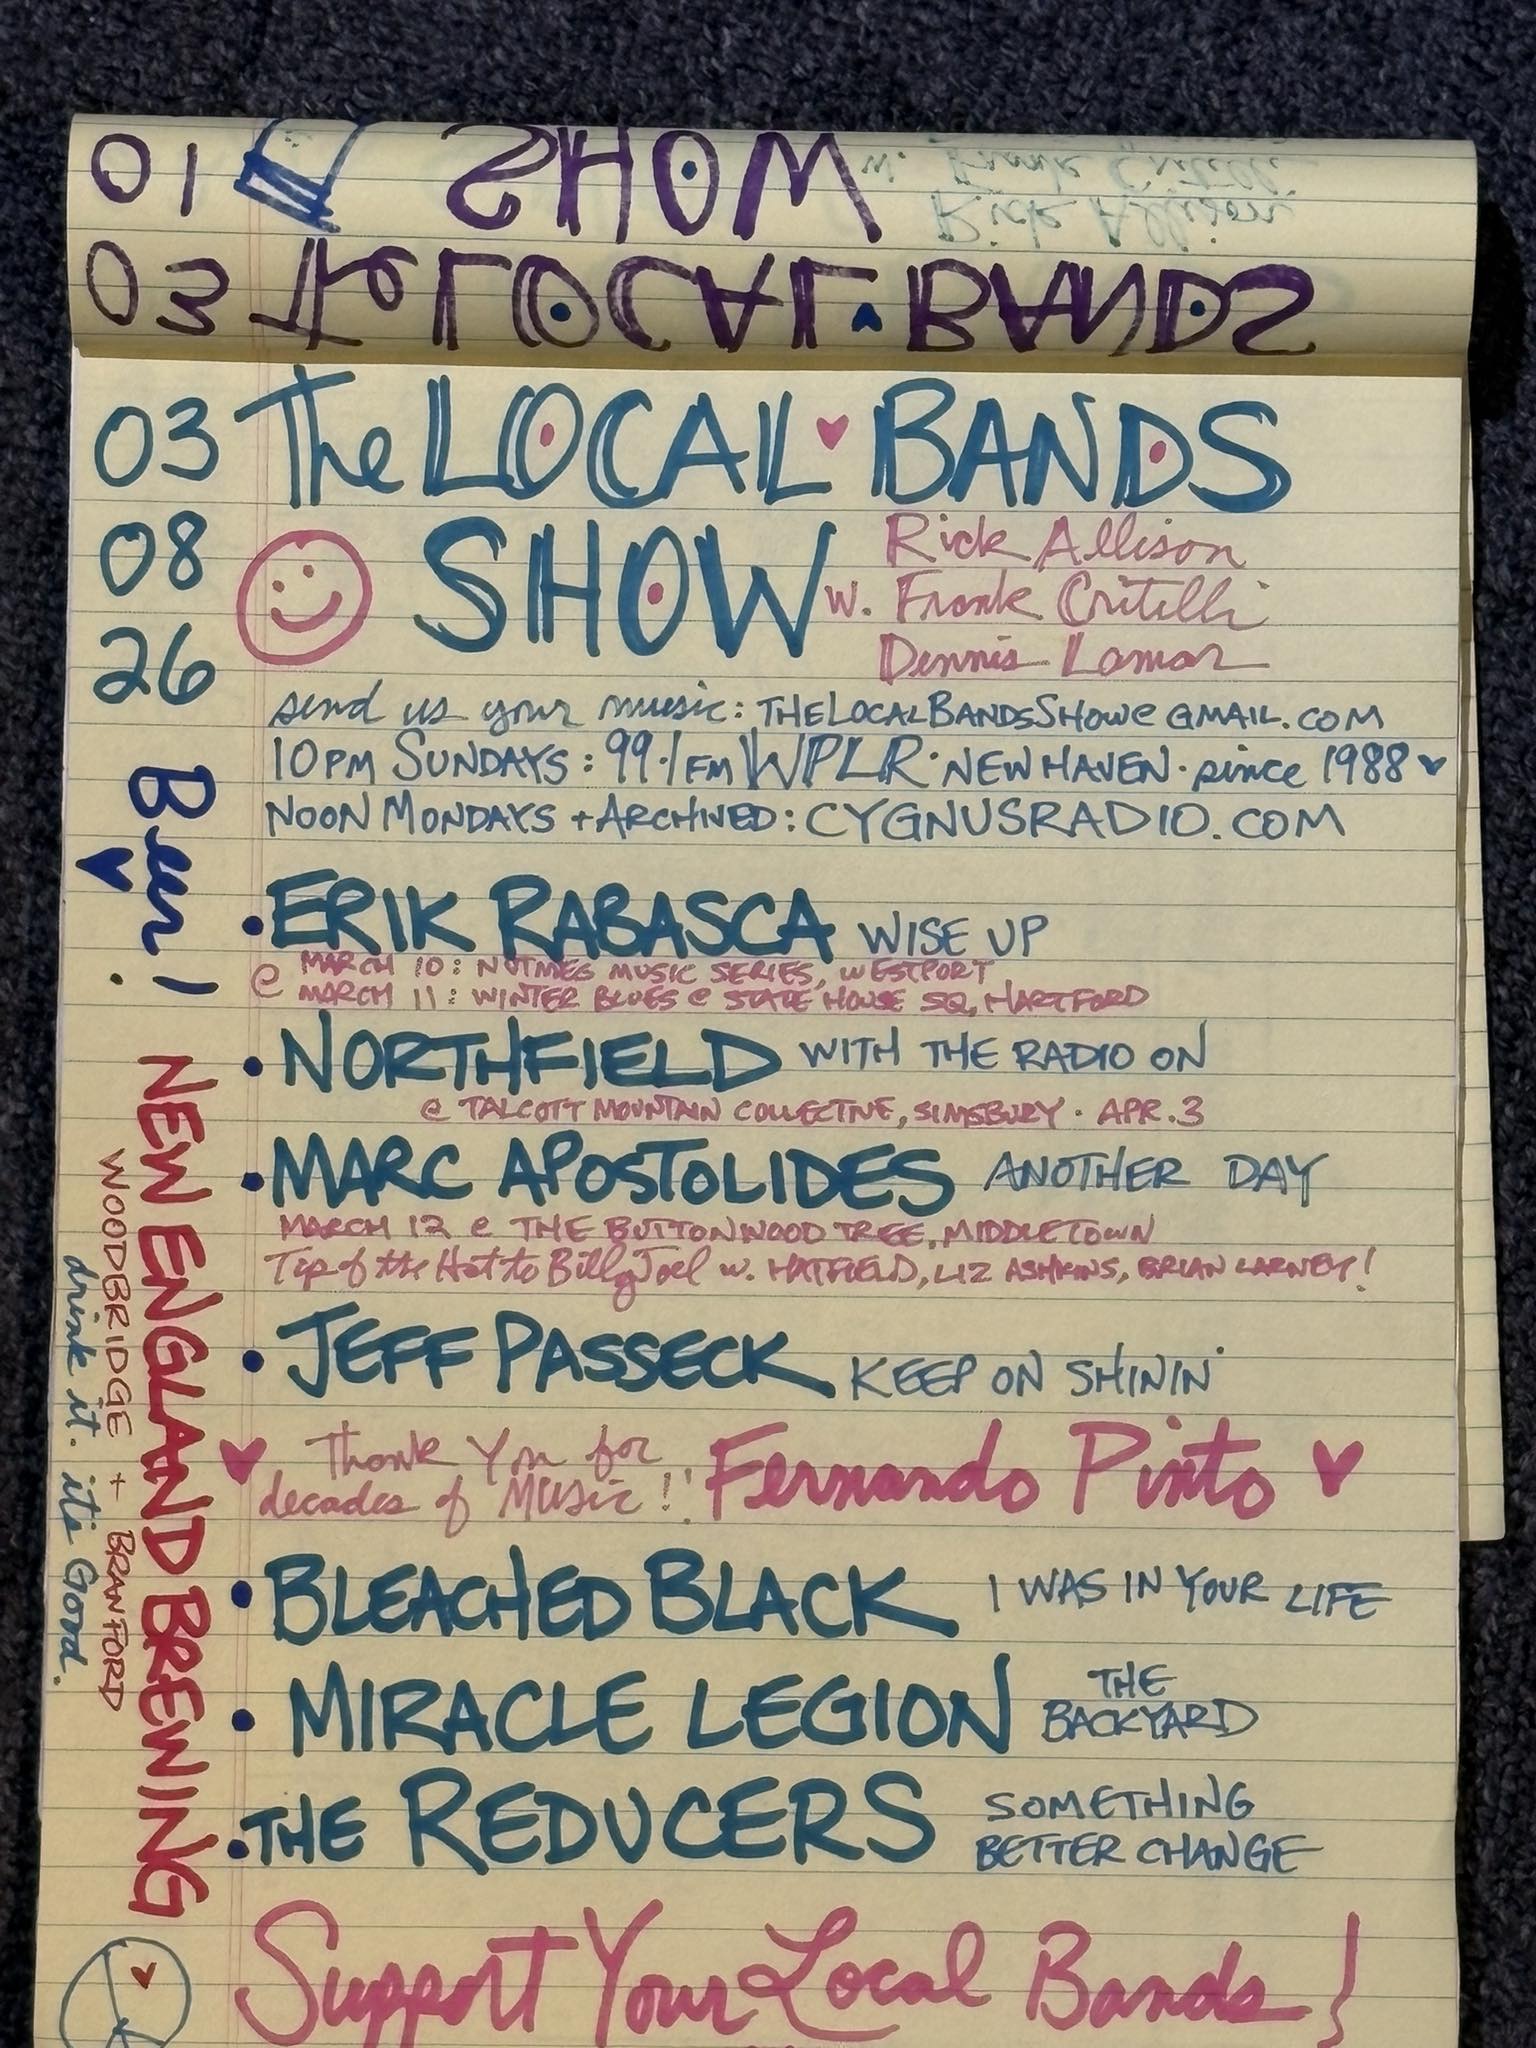 01 SHOW w. Frank Critelli
Rick Allison
03 The LOCAL BANDS
03 The LOCAL BANDS
08 SHOW w. Rick Allison
Frank Critelli
26 Dennis Lamar
send us your music: THELOCALBANDSSHOW@GMAIL.COM
10PM SUNDAYS: 99.1FM WPLR · NEW HAVEN · since 1988
NOON MONDAYS + ARCHIVED: CYGNUSRADIO.COM
• ERIK RABASCA WISE UP
@ MARCH 10: NUTMEG MUSIC SERIES, WESTPORT
MARCH 11: WINTER BLUES @ STATE HOUSE SQ, HARTFORD
• NORTHFIELD WITH THE RADIO ON
@ TALCOTT MOUNTAIN COLLECTIVE, SIMSBURY · APR. 3
• MARC APOSTOLIDES ANOTHER DAY
MARCH 12 @ THE BUTTONWOOD TREE, MIDDLETOWN
Tip of the Hat to Billy Joel w. HATFIELD, LIZ ASHKINS, BRIAN LARNEY!
• JEFF PASSECK KEEP ON SHININ'
Thank You for
decades of Music!! Fernando Pinto
• BLEACHED BLACK I WAS IN YOUR LIFE
• MIRACLE LEGION THE
BACKYARD
• THE REDUCERS SOMETHING
BETTER CHANGE
Support Your Local Bands!
Beer!
NEW ENGLAND BREWING
WOODBRIDGE + BRANFORD
drink it. it's Good.